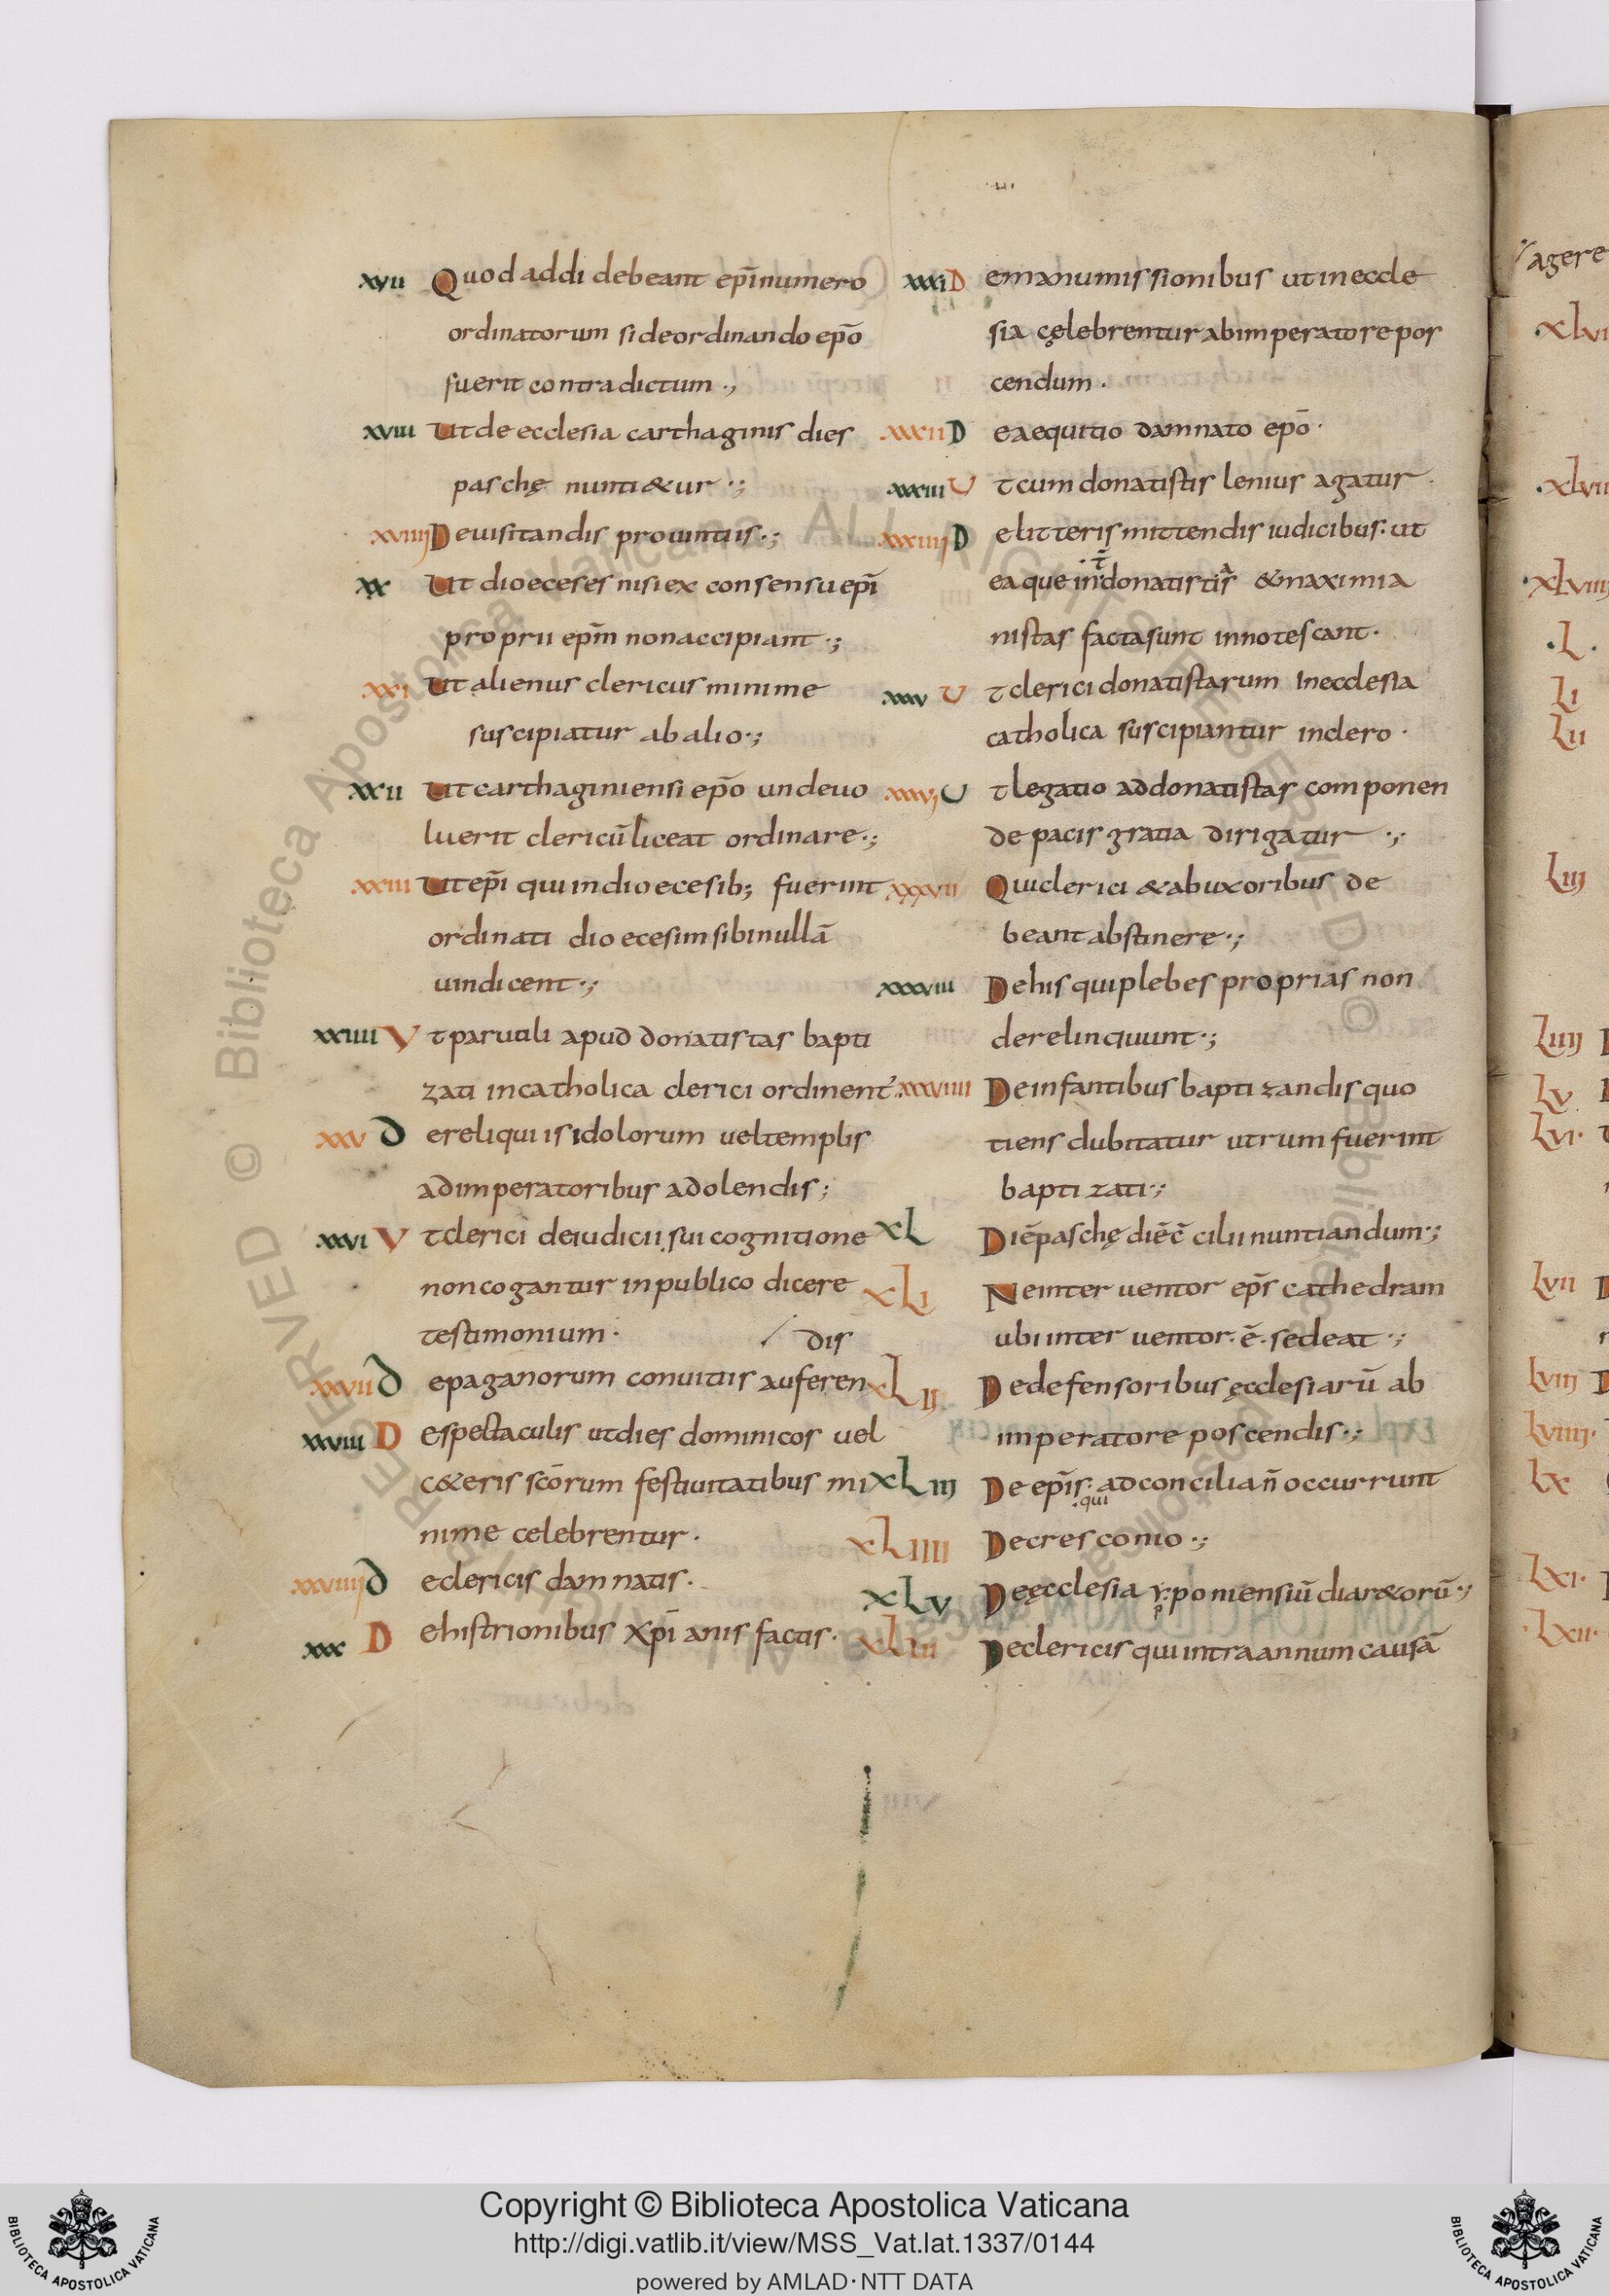 xvii Quod addi debeant ep̄i numero
ordinatorum si de ordinando ep̄o
fuerit contradictum .,
xviii Ut de ecclesia carthaginis dies
paschę nunti&ur .;
xviiii De uisitandis prouintiis .;
xx Ut dioeceses nisi ex consensu ep̄i
proprii ep̄m non accipiant .;
xxi Ut alienus clericus minime
suscipiatur ab alio .;
xxii Ut carthaginiensi ep̄o unde uo
luerit clericū liceat ordinare .;
xxiii Ut ep̄i qui in dioecesib; fuerint
ordinati dioecesim sibi nullā
uindicent .;
xxiiii Ut paruuli apud donatistas bapti
zati in catholica clerici ordinent'
xxv De reliquiis idolorum uel templis
ad imperatoribus adolendis ;
xxvi Ut clerici de iudicii sui cognitione
non cogantur in publico dicere
testimonium . / dis
xxvii De paganorum conuitiis auferen
xxviii De spectaculis ut dies dominicos uel
c&eris scōrum festiuitatibus mi
nime celebrentur .
xxviiii De clericis damnatis .
xxx De histrionibus xp̄ianis factis .
xxxi De manumissionibus ut in eccle
sia cęlebrentur ab imperatore pos
cendum .
xxxii De aequitio damnato ep̄o .
xxxiii Ut cum donatistis lenius agatur .
xxxiiii De litteris mittendis iudicibus : ut
ea que in donatistis &maximia
nistas facta sunt innotescant .
xxxv Ut clerici donatistarum in ecclesia
catholica suscipiantur in clero .
xxxvi Ut legatio ad donatistas componen
de pacis gratia dirigatur .;
xxxvii Qui clerici &ab uxoribus de
beant abstinere .;
xxxviii De his qui plebes proprias non
derelincuunt .;
xxxviiii De infantibus baptizandis quo
tiens dubitatur utrum fuerint
baptizati .;
xL Diē paschę diē c̄ cilii nuntiandum .;
xLi Ne interuentor ep̄s cathedram
ubi interuentor . ē . sedeat .;
xLii De defensoribus ęcclesiarū ab
imperatore poscendis .;
xLiii De ep̄is : ad concilia n̄ occurrunt
.qui
xLiiii De cresconio .;
xLv De ęcclesia yponiensiū diar&orū .;
xLvi De clericis qui intra annum causā
/agere
xlvi
.xlvii
.xLviiii
.L.
Li
Lii
Liii
Liiii
Lv
Lvi.
Lvii
Lviii
Lviiii.
Lx
Lxi.
.Lxii.
© Biblioteca Apostolica Vaticana ALL RIGHTS RESERVED
Copyright © Biblioteca Apostolica Vaticana
http://digi.vatlib.it/view/MSS_Vat.lat.1337/0144
powered by AMLAD·NTT DATA
BIBLIOTECA APOSTOLICA VATICANA
BIBLIOTECA APOSTOLICA VATICANA